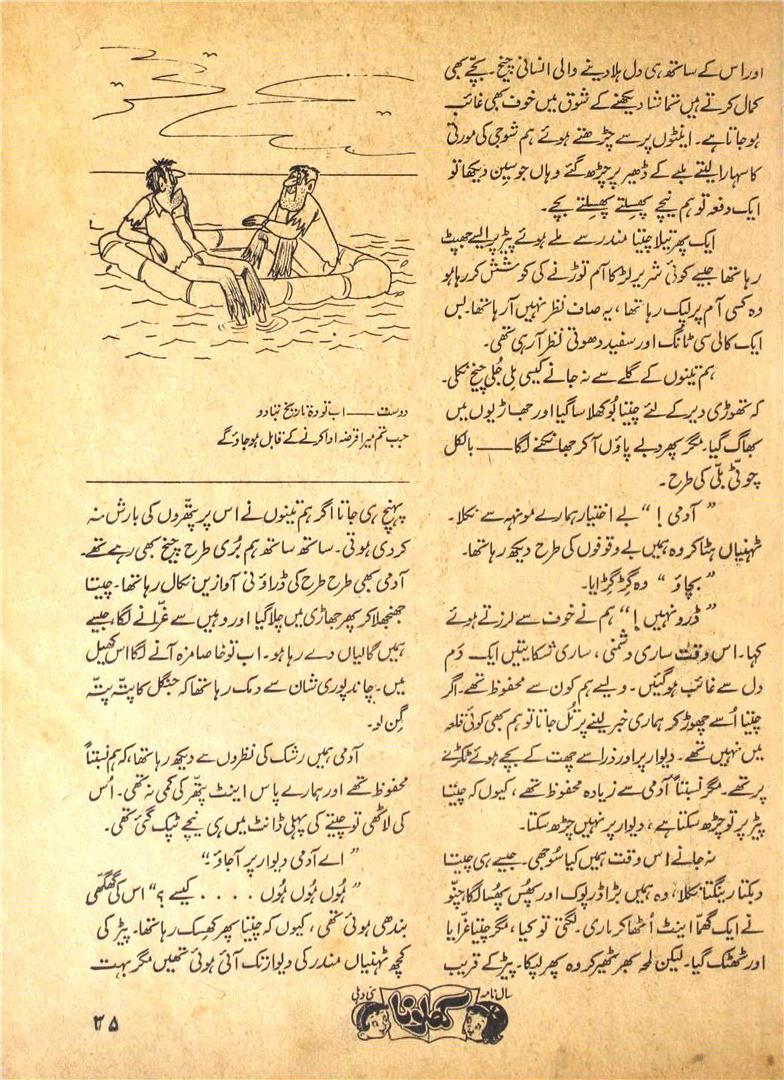 اور اس کے ساتھ ہی دل ہلا دینے والی انسانی چیخ۔ بچّے بھی
کمال کرتے ہیں تماشا دیکھنے کے شوق میں خوف بھی غائب
ہو جاتا ہے۔ اینٹوں پر سے چڑھتے ہوئے ہم شو جی کی مورتی
کا سہارا لیتے ملبے کے ڈھیر پر چڑھ گئے وہاں جو سین دیکھا تو
ایک دفعہ تو ہم نیچے پھسلتے پھسلتے بچے۔
ایک پھرتیلا چیتا مندر سے ملے ہوئے پیڑ پر ایسے جھپٹ
رہا تھا جیسے کوئی شریر لڑکا آم توڑنے کی کوشش کر رہا ہو
وہ کسی آم پر لپک رہا تھا، یہ صاف نظر نہیں آ رہا تھا۔ بس
ایک کالی سی ٹانگ اور سفید دھوتی نظر آ رہی تھی۔
ہم تینوں کے گلے سے نہ جانے کیسی مِلی جُلی چیخ نکلی۔
کہ تھوڑی دیر کے لئے چیتا بُوکھلا سا گیا اور جھاڑیوں میں
بھاگ گیا۔ مگر پھر دبے پاؤں آ کر جھانکنے لگا —— بالکل
چوٹّی بلّی کی طرح۔
”آدمی!“ بے اختیار ہمارے مونہہ سے نکلا۔
ٹہنیاں ہٹا کر وہ ہمیں بے وقوفوں کی طرح دیکھ رہا تھا۔
”بچاؤ“ وہ گِڑ گِڑایا۔
”ڈرو نہیں!“ ہم نے خوف سے لرزتے ہوئے
کہا۔ اس وقت ساری دشمنی، ساری شکایتیں ایک دَم
دل سے غائب ہو گئیں۔ ویسے ہم کون سے محفوظ تھے۔ اگر
چیتا اُسے چھوڑ کر ہماری خبر لینے پر تُل جاتا تو ہم بھی کوئی قلعہ
میں نہیں تھے۔ دیوار پر اور ذرا سے چھت کے بچے ہوئے ٹکڑے
پر تھے۔ مگر نسبتاً آدمی سے زیادہ محفوظ تھے، کیوں کہ چیتا
پیڑ پر تو چڑھ سکتا ہے، دیوار پر نہیں چڑھ سکتا۔
نہ جانے اس وقت ہمیں کیا سُوجھی۔ جیسے ہی چیتا
دبکتا رینگتا نکلا، وہ ہمیں بڑا ڈرپوک اور پھُس پھُسا لگا، چنّو
نے ایک گھمّا اینٹ اُٹھا کر ماری۔ لگتی تو کیا، مگر چیتا غرّایا
اور ٹھٹک گیا۔ لیکن لمحہ بھر ٹھیر کر وہ پھر لپکا۔ پیڑ کے قریب
دوست —— اب تو وہ تاریخ بتا دو
جب تم میرا قرضہ ادا کرنے کے قابل ہو جاؤ گے
پہنچ ہی جاتا اگر ہم تینوں نے اس پر پتھّروں کی بارش نہ
کر دی ہوتی۔ ساتھ ساتھ ہم بُری طرح چیخ بھی رہے تھے۔
آدمی بھی طرح طرح کی ڈراؤنی آوازیں نکال رہا تھا۔ چیتا
جھنجھلا کر پھر جھاڑی میں چلا گیا اور وہیں سے غرّانے لگا، جیسے
ہمیں گالیاں دے رہا ہو۔ اب تو خاصا مزہ آنے لگا اس کھیل
میں۔ چاند پوری شان سے دمک رہا تھا کہ جنگل کا پتّہ پتّہ
گِن لو۔
آدمی ہمیں رشک کی نظروں سے دیکھ رہا تھا، کہ ہم نسبتاً
محفوظ تھے اور ہمارے پاس اینٹ پتھّر کی کمی نہ تھی۔ اُس
کی لاٹھی تو چیتے کی پہلی ڈانٹ میں ہی نیچے ٹپک گئی تھی۔
”اے آدمی دیوار پر آ جاؤ۔“
”ہُوں ہُوں ہُوں . . . . کیسے؟“ اس کی گھگھّی
بندھی ہوئی تھی، کیوں کہ چیتا پھر کھسک رہا تھا۔ پیڑ کی
کچھ ٹہنیاں مندر کی دیوار تک آئی ہوئی تھیں مگر بہت
سال نامہ کھلونا نئی دہلی
۳۵